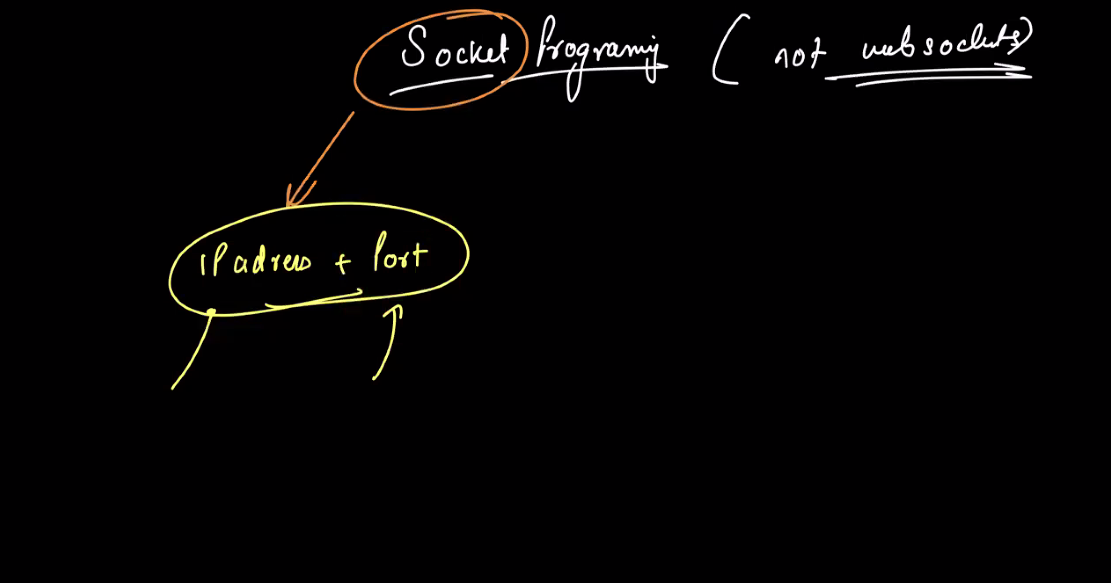 Socket Programing ( not websockets)
IP adress + Port